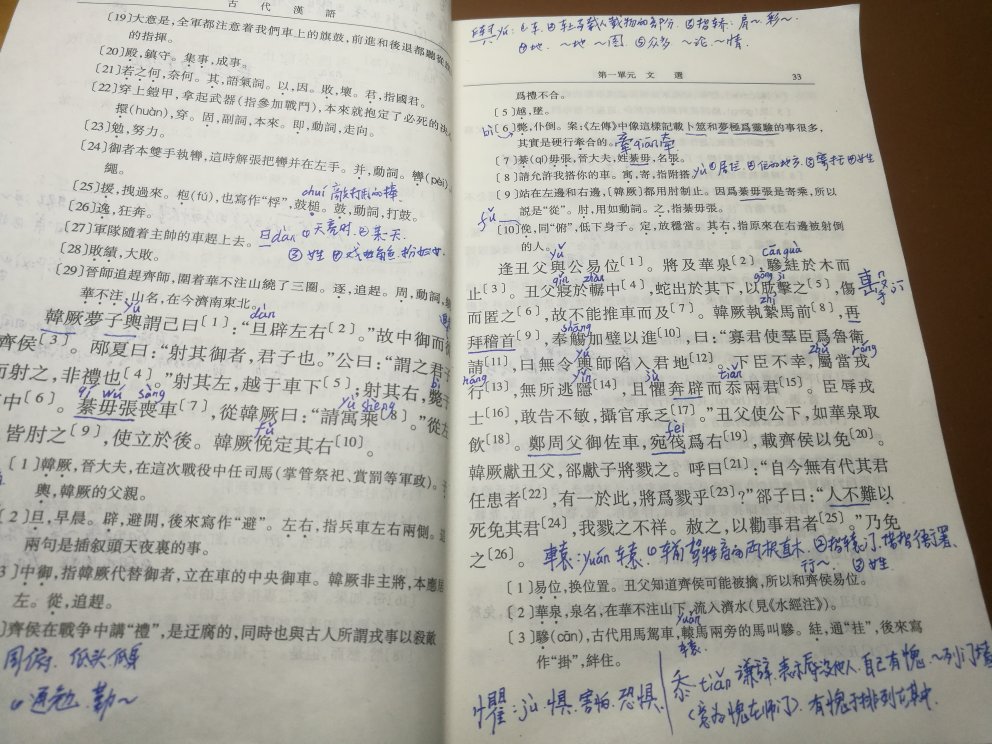 古代漢語
[19]大意是,全軍都注意着我們車上的旗鼓,前進和後退都聽從
的指揮。
[20]殿,鎮守。集事,成事。
[21]若之何,奈何。其,語氣詞。以,因。敗,壞。君,指國君。
[22]穿上鎧甲,拿起武器(指參加戰鬥),本來就抱定了必死的決
擐(huàn),穿。固,副詞,本來。即,動詞,走向。
[23]勉,努力。
[24]御者本雙手執轡,這時解張把轡并在左手。并,動詞。轡(pèi),
繩。
[25]援,拽過來。枹(fú),也寫作“桴”,鼓槌。鼓,動詞,打鼓。
chuí 敲打用的棒
[26]逸,狂奔。
[27]軍隊隨着主帥的車趕上去。
旦dàn ①天亮时 ②某天
[28]敗績,大敗。
[29]晉師追趕齊師,圍着華不注山繞了三圈。逐,追趕。周,動詞,
華不注,山名,在今濟南東北。
yú dàn
韓厥夢子輿謂己曰[1]:“旦辟左右[2]。”故中御而
齊侯[3]。邴夏曰:“射其御者,君子也。”公曰:“謂之君子
而射之,非禮也[4]。”射其左,越于車下[5];射其右,斃于
qí wú sàng yù shèng bì
中[6]。綦毋張喪車[7],從韓厥曰:“請寓乘[8]。”從左
fǔ
皆肘之[9],使立於後。韓厥俛定其右[10]。
[1]韓厥,晉大夫,在這次戰役中任司馬(掌管祭祀、賞罰等軍政)。子
輿,韓厥的父親。
[2]旦,早晨。辟,避開,後來寫作“避”。左右,指兵車左右兩側。這
兩句是插叙頭天夜裏的事。
[3]中御,指韓厥代替御者,立在車的中央御車。韓厥非主將,本應居
左。從,追趕。
[4]齊侯在戰爭中講“禮”,是迂腐的,同時也與古人所謂戎事以殺敵
同俯. 低头 倾
通勉 勤~
第一單元 文選 33
爲禮不合。
[5]越,墜。
bì
[6]斃,仆倒。案:《左傳》中像這樣記載卜筮和夢極爲靈驗的事很多,
其實是硬行牽合的。
牽qiān牵
[7]綦(qí)毋張,晉大夫,姓綦毋,名張。
[8]請允許我搭你的車。寓,寄,指附搭。
[9]站在左邊和右邊,[韓厥]都用肘制止。因爲綦毋張是寄乘,所以
説是“從”。肘,用如動詞。之,指綦毋張。
fǔ
[10]俛,同“俯”,低下身子。定,放穩當。其右,指原來在右邊被射倒
的人。
yǔ cān guà
逢丑父與公易位[1]。將及華泉[2],驂絓於木而
止[3]。丑父寢於轏中[4],蛇出於其下,以肱擊之[5],傷
而匿之[6],故不能推車而及[7]。韓厥執縶馬前[8],再
拜稽首[9],奉觴加璧以進[10],曰:“寡君使羣臣爲魯衛
請[11],曰無令輿師陷入君地[12]。下臣不幸,屬當戎
行[13],無所逃隱[14],且懼奔辟而忝兩君[15]。臣辱戎
士[16],敢告不敏,攝官承乏[17]。”丑父使公下,如華泉取
飲[18]。鄭周父御佐車,宛茷爲右[19],載齊侯以免[20]。
韓厥獻丑父,郤獻子將戮之。呼曰[21]:“自今無有代其君
任患者[22],有一於此,將爲戮乎[23]?”郤子曰:“人不難以
死免其君[24],我戮之不祥。赦之,以勸事君者[25]。”乃免
之[26]。
[1]易位,換位置。丑父知道齊侯可能被擒,所以和齊侯易位。
[2]華泉,泉名,在華不注山下,流入濟水(見《水經注》)。
[3]驂(cān),古代用馬駕車,轅馬兩旁的馬叫驂。絓,通“挂”,後來寫
作“掛”,絆住。
懼:jù 惧. 害怕. 恐惧.
忝 tiǎn 谦辞. 表示辱没他人. 自己有愧.